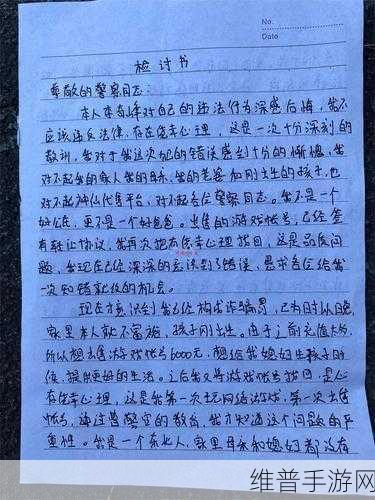 No.
Date
检讨书
尊敬的警察同志:
本人李 对自己的违法行为深感后悔,我不
应该违反法律,存在侥幸心理,这是一次十分深刻的
教训,我对于我这次犯的错误感到十分的惭愧,我
对不起我的家人我的母亲,我的老婆和刚出生的孩子,也
对不起 代售平台,对不起各位警察同志。我不是一个
好公民,更不是一个好爸爸。出售的游戏帐号,已经签
有转让协议,我再次抱有侥幸心理找回,这是品质问
题,我现在已经深深的意识到了错误,恳求各位给我
一次知错就改的机会。
现在才意识到我已经构成诈骗罪,已为时以晚,
家里本人就不富裕,孩子刚出生。由于之前充值太多,
所以想出售游戏帐号6000元,想给我媳妇生孩子时
候,提供更好的生活。之后我又将游戏帐号找回,是心
存侥幸心理,这是我第一次玩网络游戏,第一次出售
帐号,通过警官的教育,我才知道这个问题的严
重性。我是一个东北人,家里母亲和媳妇都没有
维普手游网